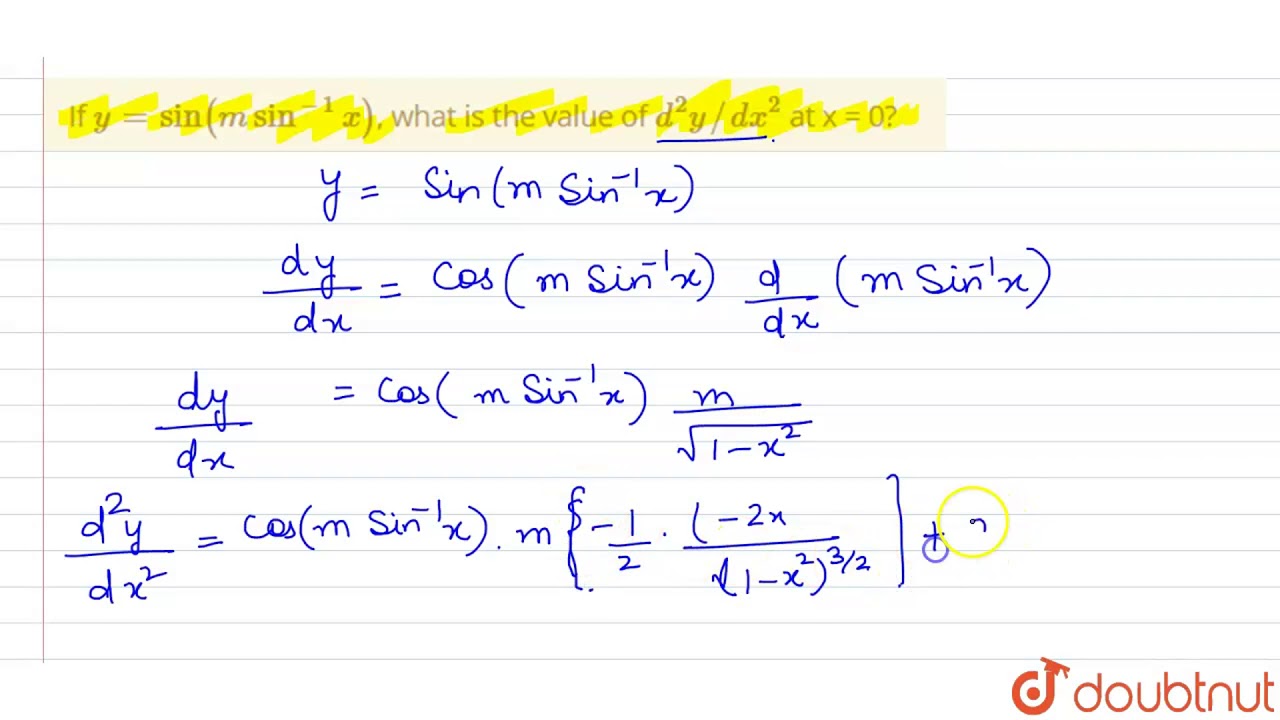 If y = sin(m sin⁻¹ x), what is the value of d²y/dx² at x = 0?
y = Sin(m Sin⁻¹x)
dy/dx = Cos(m Sin⁻¹x) d/dx (m Sin⁻¹x)
dy/dx = Cos(m Sin⁻¹x) m/√1-x²
d²y/dx² = Cos(m Sin⁻¹x). m {-1/2 · (-2x/(1-x²)^3/2] +
doubtnut